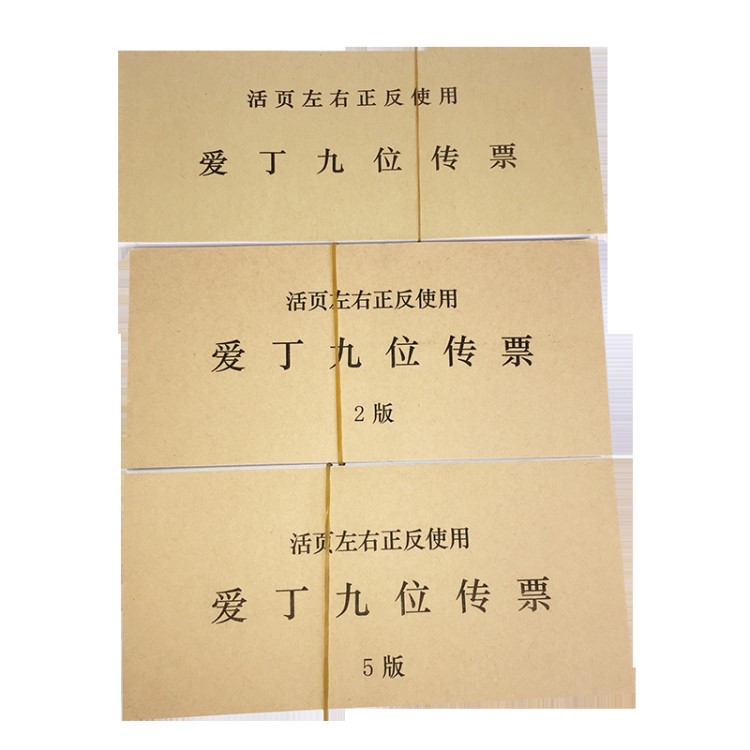 活页左右正反使用
爱丁九位传票
活页左右正反使用
爱丁九位传票
2版
活页左右正反使用
爱丁九位传票
5版